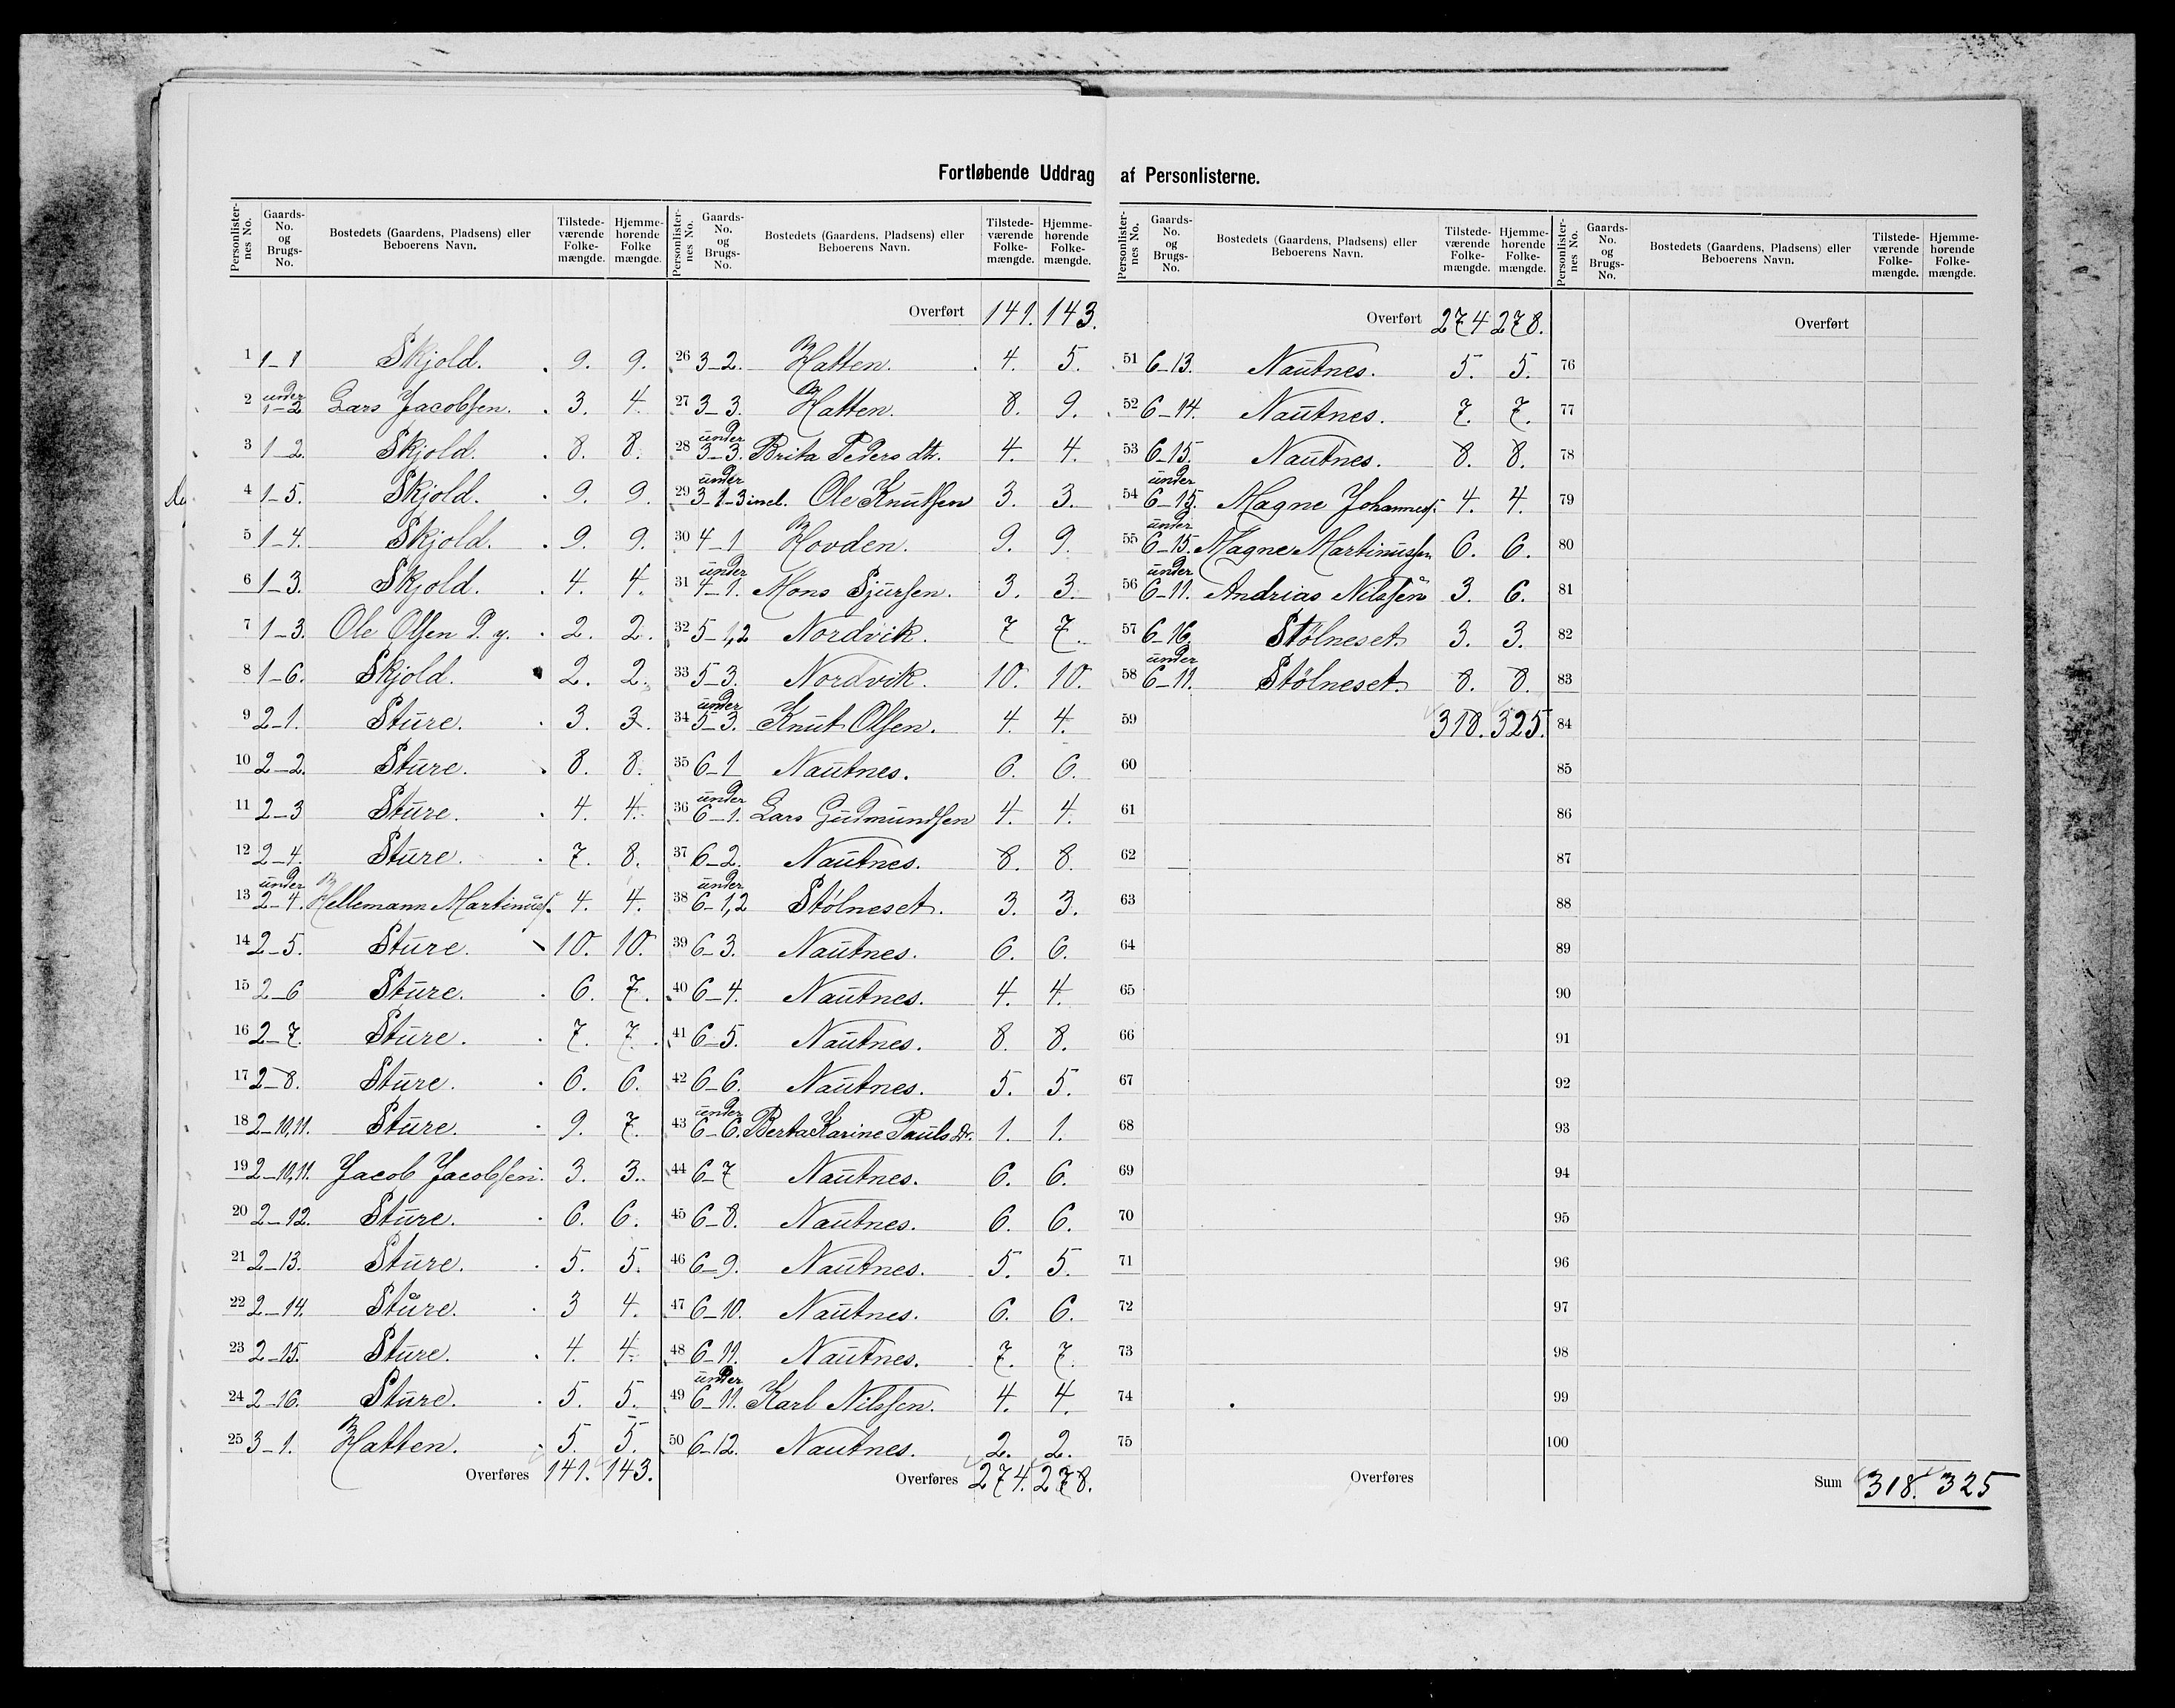 Fortløbende Uddrag af Personlisterne.
Personlister-nes No. Gaards-No. og Brugs-No. Bostedets (Gaardens, Pladsens) eller Beboerens Navn. Tilstede-værende Folke-mængde. Hjemme-hørende Folke mængde.
1 1-1 Skjold. 9. 9.
2 under 1-2 Lars Jacobsen. 3. 4.
3 1-2 Skjold. 8. 8.
4 1-5. Skjold. 9. 9.
5 1-4. Skjold. 9. 9.
6 1-3. Skjold. 4. 4.
7 1-3. Ole Olsen d. y. 2. 2.
8 1-6. Skjold. 2. 2.
9 2-1. Sture. 3. 3.
10 2-2. Sture. 8. 8.
11 2-3 Sture. 4. 4.
12 2-4. Sture. 7. 8.
13 under 2-4. Hellemann Martinuss. 4. 4.
14 2-5. Sture. 10. 10.
15 2-6 Sture. 6. 7.
16 2-7. Sture. 7. 7.
17 2-8. Sture. 6. 6.
18 2-10,11. Sture. 9. 7.
19 2-10,11. Jacob Jacobsen. 3. 3.
20 2-12. Sture. 6. 6.
21 2-13. Sture. 5. 5.
22 2-14. Sture. 3 4.
23 2-15. Sture. 4. 4.
24 2-16. Sture. 5. 5.
25 3-1. Hatten. 5. 5.
Overføres 141. 143.
Personlister-nes No. Gaards-No. og Brugs-No. Bostedets (Gaardens, Pladsens) eller Beboerens Navn. Tilstede-værende Folke-mængde. Hjemme-hørende Folke-mængde.
Overført 141. 143.
26 3-2. Hatten. 4. 5.
27 3-3. Hatten. 8. 9.
28 under 3-3. Brita Peders dtr. 4. 4.
29 under 3-1-3 incl. Ole Knutsen 3. 3.
30 4-1 Hovden. 9. 9.
31 under 4-1. Mons Sjursen. 3. 3.
32 5-1,2 Nordvik. 7 7.
33 5-3. Nordvik. 10. 10.
34 under 5-3. Knut Olsen. 4. 4.
35 6-1 Nautnes. 6. 6.
36 under 6-1. Lars Gudmundsen 4. 4.
37 6-2. Nautnes. 8. 8.
38 under 6-1,2 Stølneset. 3. 3.
39 6-3. Nautnes. 6. 6.
40 6-4. Nautnes. 4. 4.
41 6-5. Nautnes. 8. 8.
42 6-6. Nautnes. 5. 5.
43 under 6-6. Berta Karine Pauls dr. 1. 1.
44 6-7 Nautnes. 6. 6.
45 6-8. Nautnes. 6. 6.
46 6-9. Nautnes. 5. 5.
47 6-10. Nautnes. 6. 6.
48 6-11. Nautnes. 7. 7.
49 under 6-11. Karl Nilssen. 4. 4.
50 6-12. Nautnes. 2. 2.
Overføres 274. 278.
Personlister-nes No. Gaards-No. og Brugs-No. Bostedets (Gaardens, Pladsens) eller Beboerens Navn. Tilstede-værende Folke-mængde. Hjemme-hørende Folke-mængde.
Overført 274 278.
51 6-13. Nautnes. 5. 5.
52 6-14. Nautnes. 7. 7.
53 6-15. Nautnes. 8. 8.
54 under 6-15. Magne Johanness. 4. 4.
55 under 6-15. Magne Martinussen 6. 6.
56 under 6-11. Andrias Nilssen 3. 6.
57 6-16. Stölneset. 3. 3.
58 under 6-11. Stölneset. 8. 8.
59 318. 325.
60
61
62
63
64
65
66
67
68
69
70
71
72
73
74
75
Overføres
Personlister-nes No. Gaards-No. og Brugs-No. Bostedets (Gaardens, Pladsens) eller Beboerens Navn. Tilstede-værende Folke-mængde. Hjemme-hørende Folke-mængde.
Overført
76
77
78
79
80
81
82
83
84
85
86
87
88
89
90
91
92
93
94
95
96
97
98
99
100
Sum 318. 325